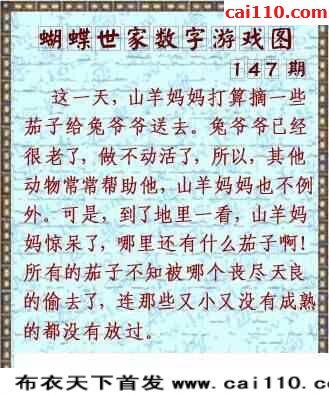 cai110.com
蝴蝶世家数字游戏图
147期
这一天，山羊妈妈打算摘一些
茄子给兔爷爷送去。兔爷爷已经
很老了，做不动活了，所以，其他
动物常常帮助他，山羊妈妈也不例
外。可是，到了地里一看，山羊妈
妈惊呆了，哪里还有什么茄子啊!
所有的茄子不知被哪个丧尽天良
的偷去了，连那些又小又没有成熟
的都没有放过。
布衣天下首发 www.cai110.c